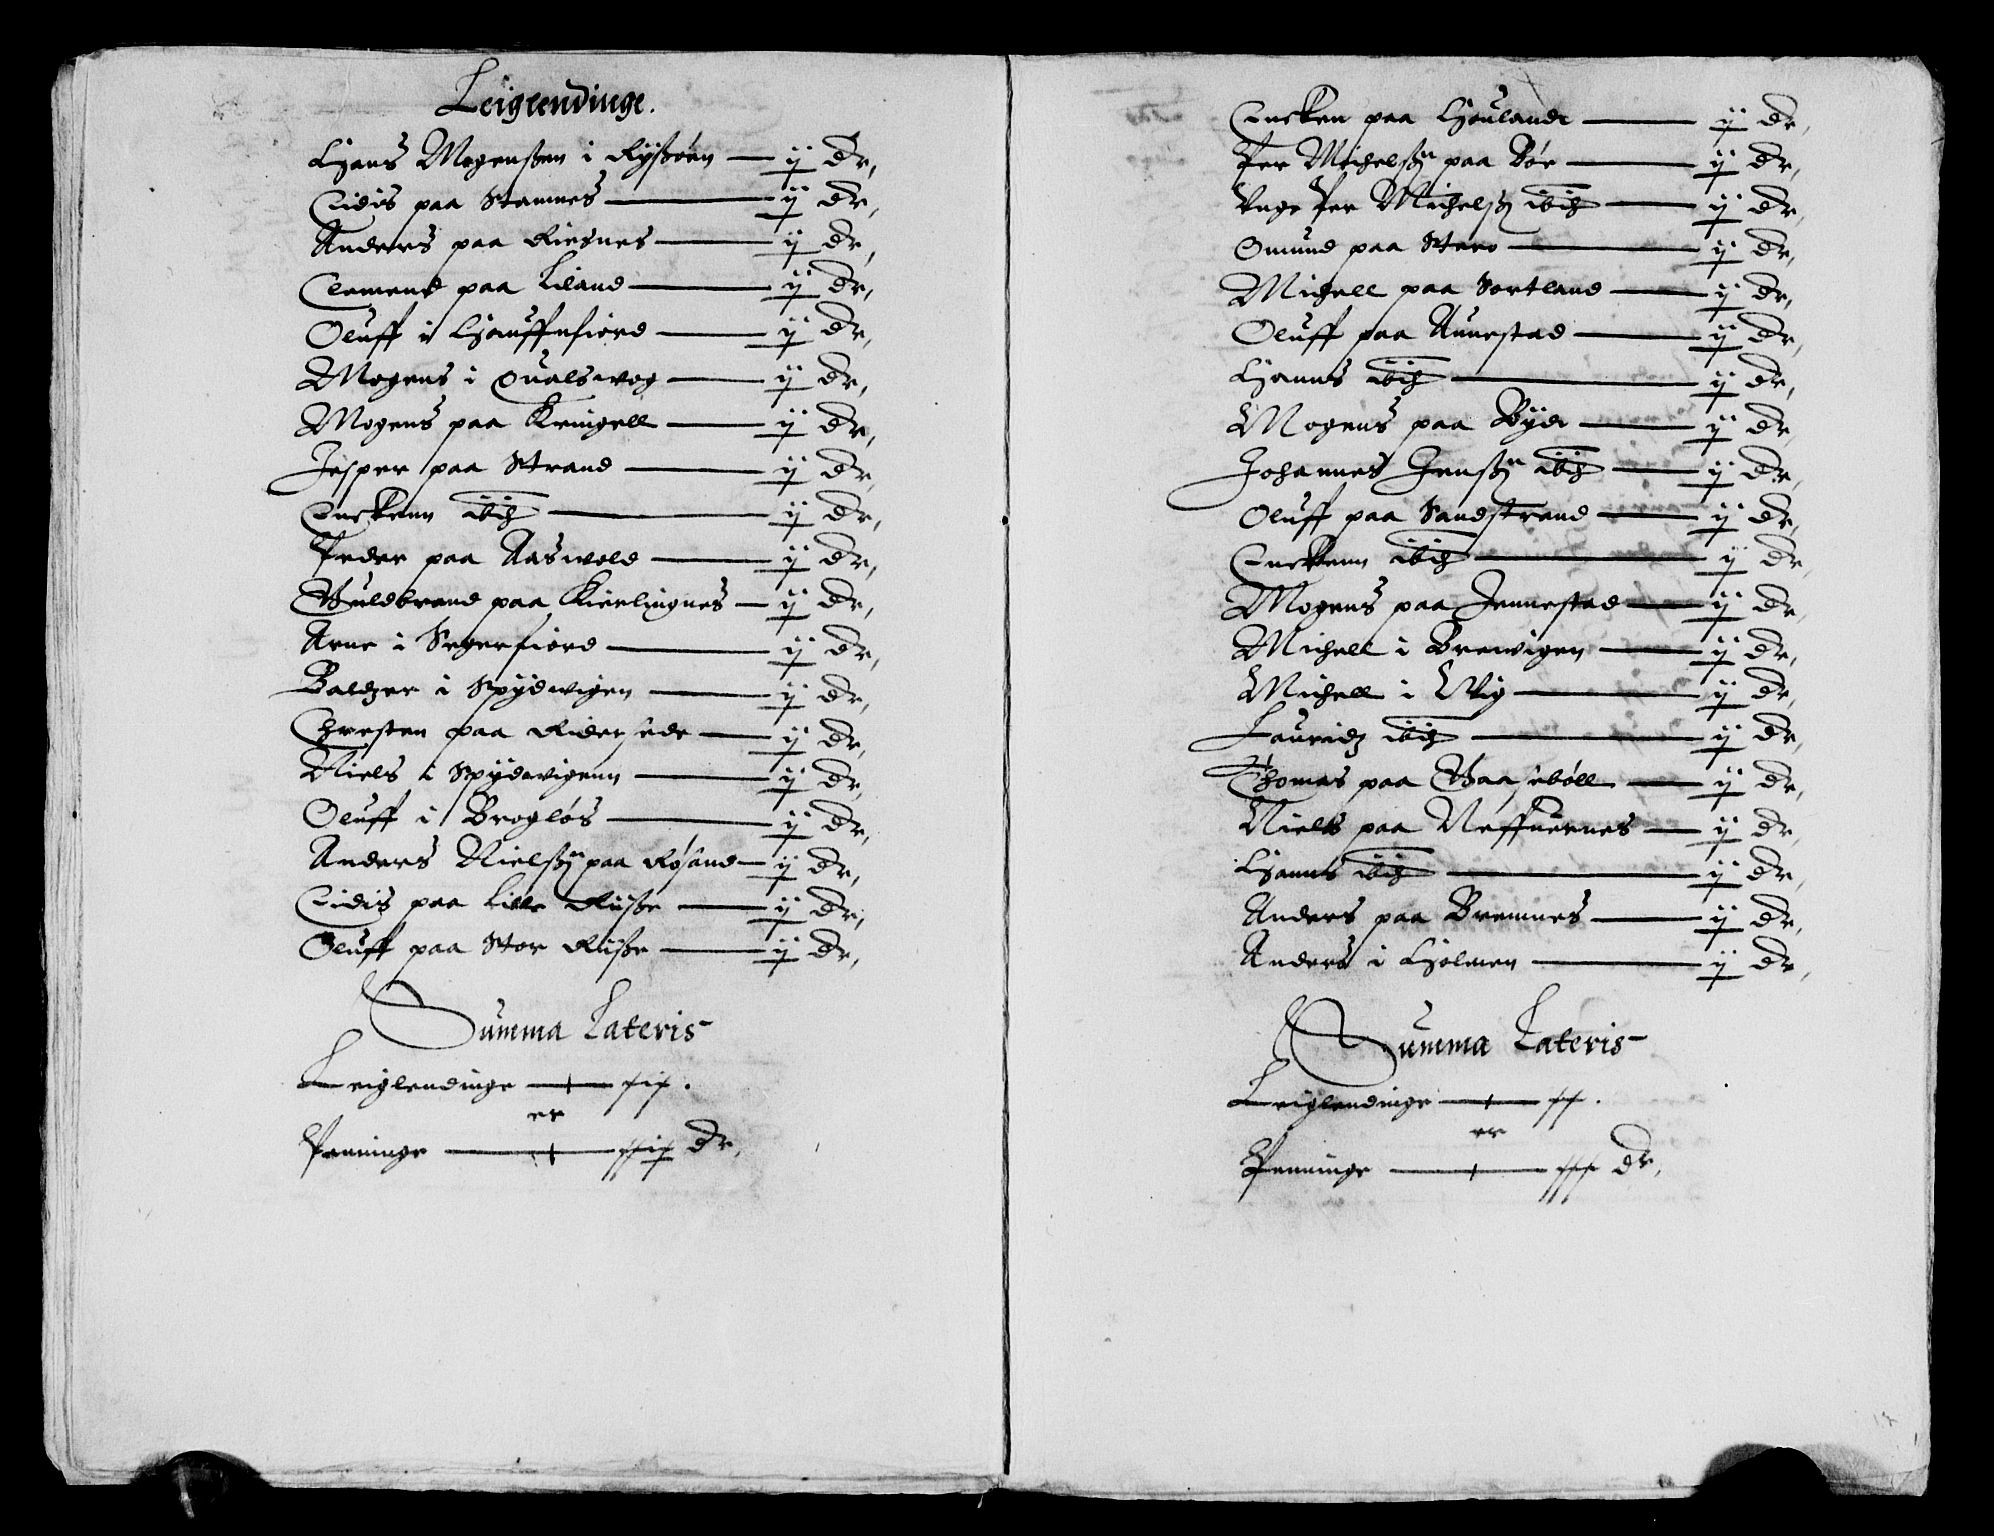 Leiglendinge.
Hans Mogenßen i Ryßøen — ij dr,
Eidis paa Stamnes — ij dr,
Anders paa Riesnes — ij dr,
Clemend paa Liland — ij dr,
Oluff i Hauffnfiord — ij dr,
Mogens i Qualswog — ij dr,
Mogens paa Kringell — ij dr,
Jesper paa Strand — ij dr,
Enckenn ibid — ij dr,
Peder paa Aaswold — ij dr,
Guldbrand paa Kierlingnes — ij dr,
Arne i Segerfiord — ij dr,
Baltzer i Spydwigen — ij dr,
Christen paa — ij dr,
Niels i Spydwigenn — ij dr,
Oluff i Brogløs — ij dr,
Anders Nielsß paa Røsand — ij dr,
Eidis paa Lille Riiße — ij dr,
Oluff paa Stor Riiße — ij dr,
Summa Lateris
Leiglendinge — xix.
er
Penninge — xxix dr,
Encken paa Haulande — ij dr,
Per Michelß paa Bøe — ij dr,
Unge Per Michelß ibid — ij dr,
Omund paa Stero — ij dr,
Michell paa Sortland — ij dr,
Oluff paa Aunestad — ij dr,
Hanns ibid — ij dr,
Mogens paa Byde — ij dr,
Johannes Jensß ibid — ij dr,
Oluff paa Sandstrand — ij dr,
Enckenn ibid — ij dr,
Mogens paa Jennestad — ij dr,
Michell i Breiwigen — ij dr,
Michell i Wig — ij dr,
Lauridz ibid — ij dr,
Thomas paa Gaasebøll — ij dr,
Niels paa Neffuernes — ij dr,
Hanns ibid — ij dr,
Anders paa Bremnes — ij dr,
Anders i Holmen — ij dr,
Summa Lateris
Leiglendinge — xx.
er
Penninge — xxx dr,